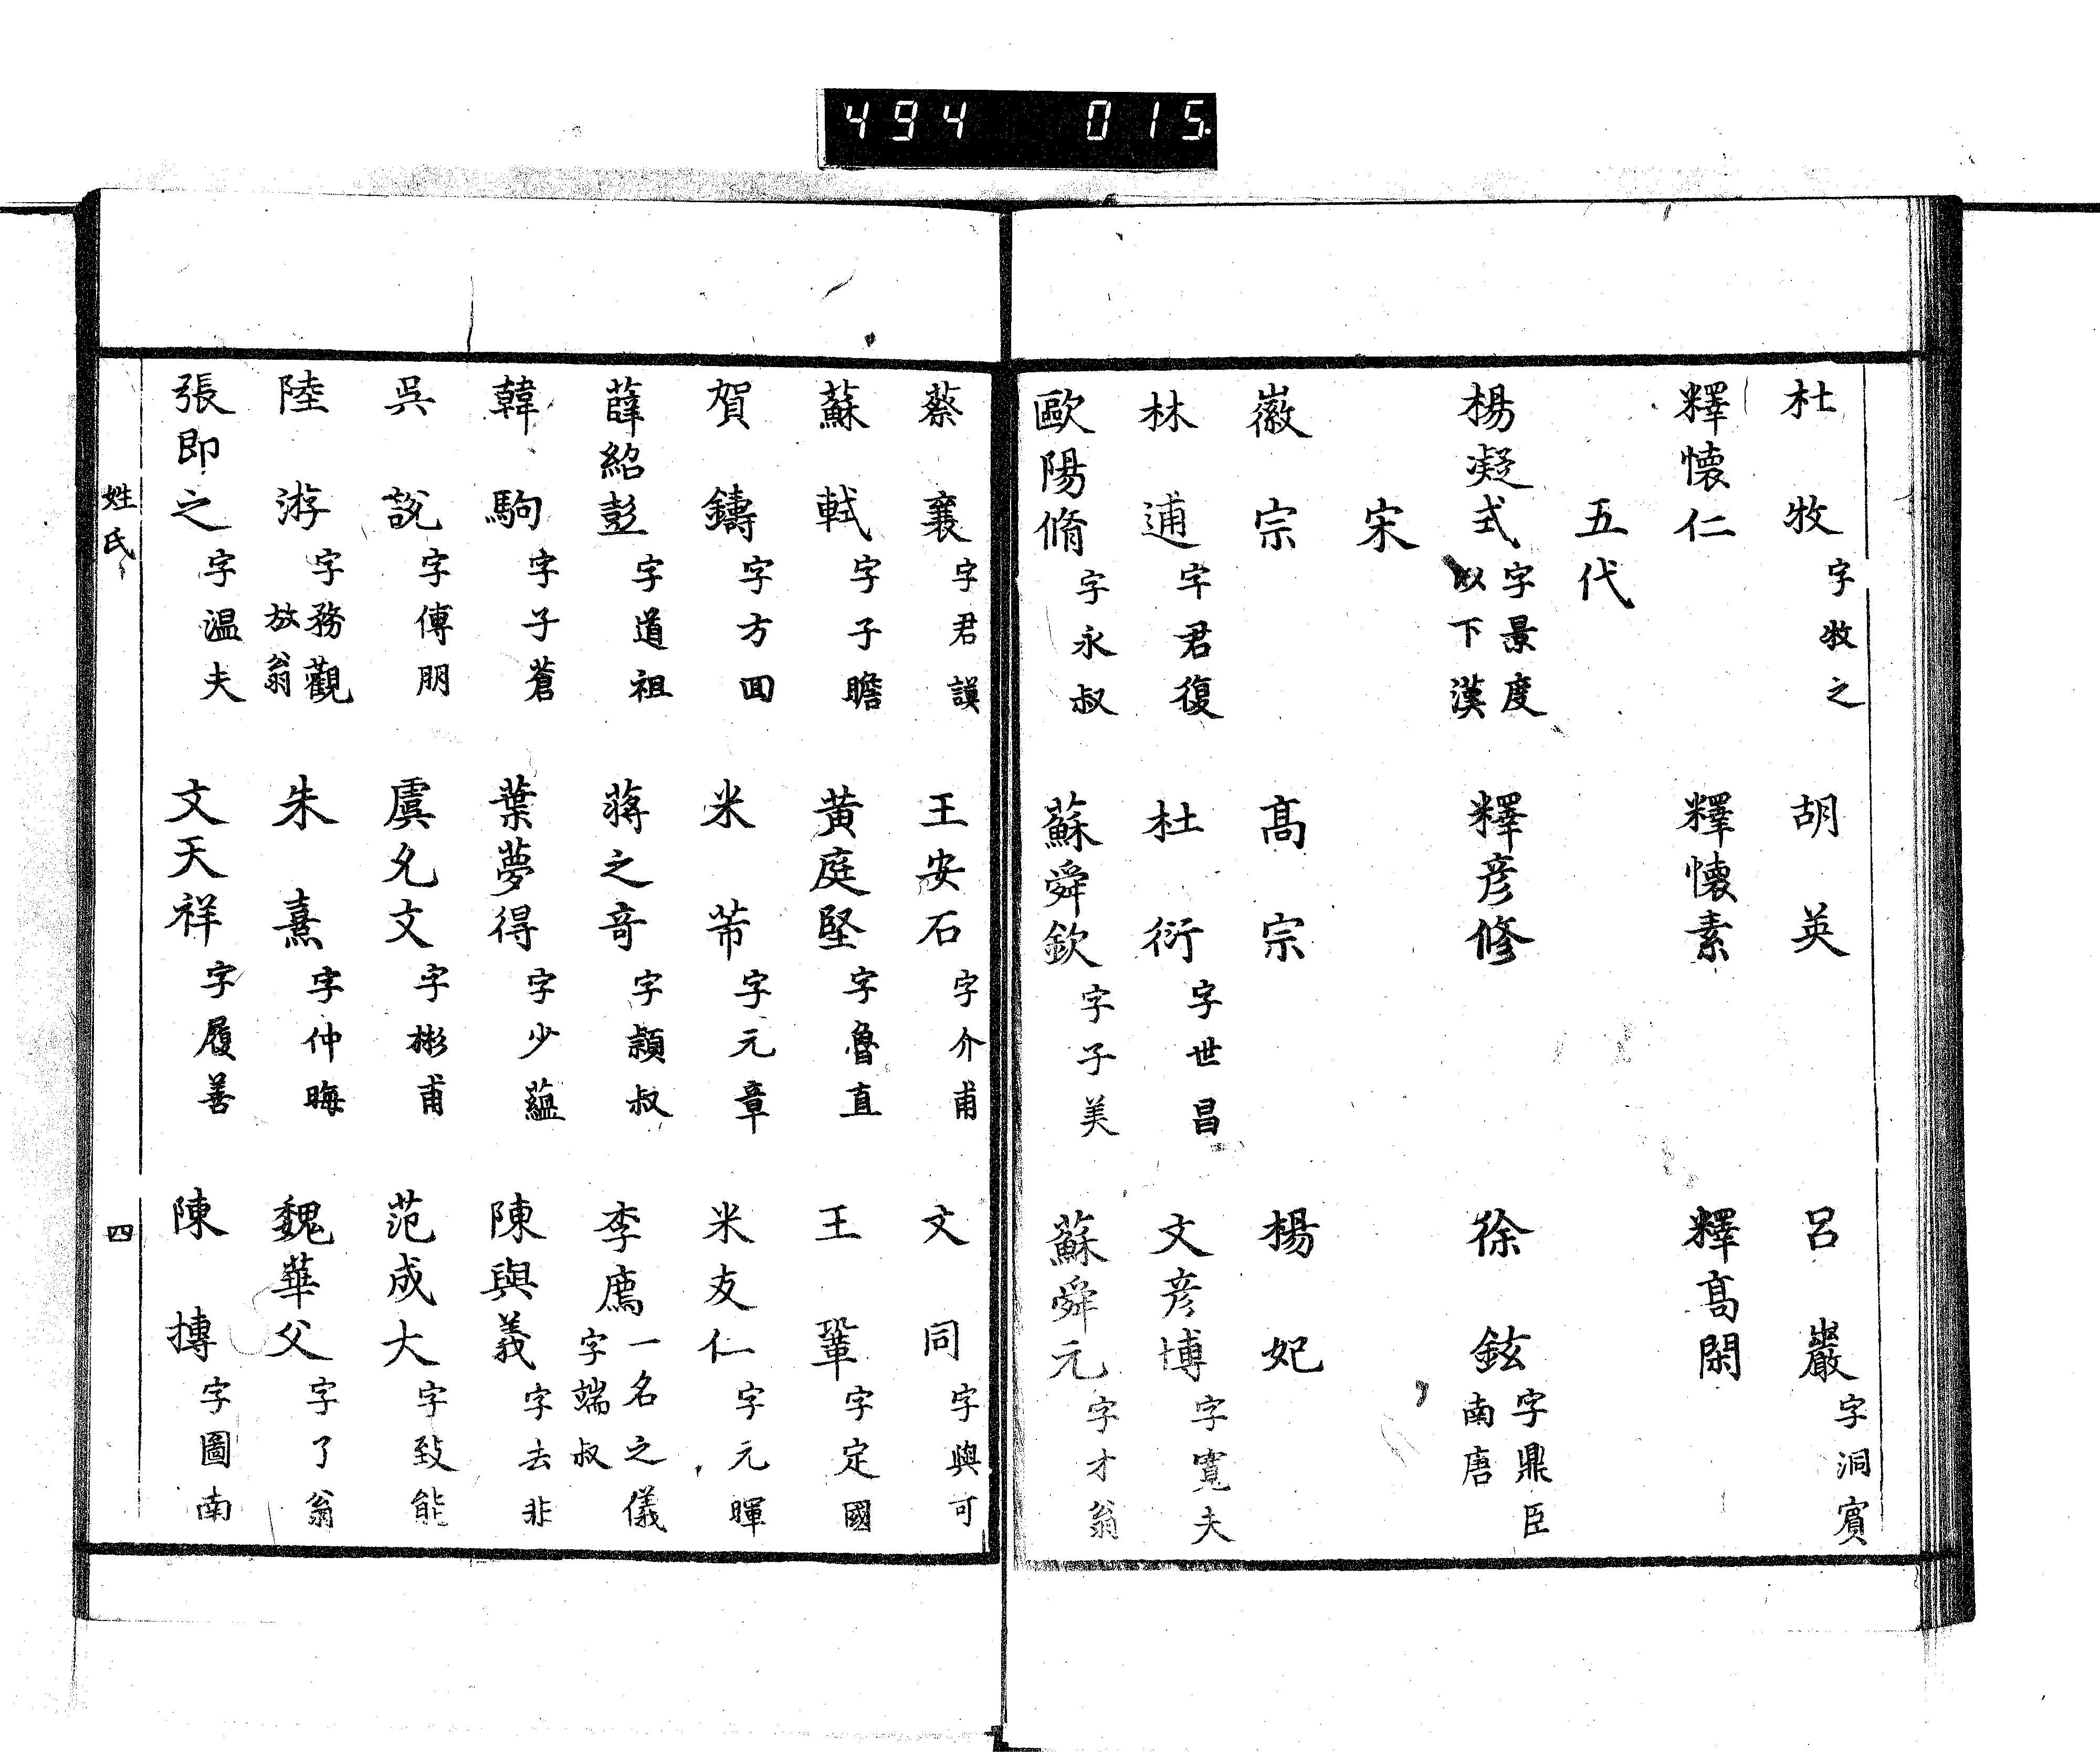 494 015
杜牧 字牧之 胡英 呂巖 字洞賓
釋懷仁 釋懷素 釋高閑
五代
楊凝式 字景度 以下漢 釋彥修 徐鉉 字鼎臣 南唐
宋
徽宗 高宗 楊妃
林逋 字君復 杜衍 字世昌 文彥博 字寬夫
歐陽脩 字永叔 蘇舜欽 字子美 蘇舜元 字才翁
蔡襄 字君謨 王安石 字介甫 文同 字與可
蘇軾 字子瞻 黃庭堅 字魯直 王鞏 字定國
賀鑄 字方回 米芾 字元章 米友仁 字元暉
薛紹彭 字道祖 蔣之奇 字潁叔 李廌 一名之儀 字端叔
韓駒 字子蒼 葉夢得 字少蘊 陳與義 字去非
吳說 字傅朋 虞允文 字彬甫 范成大 字致能
陸游 字務觀 放翁 朱熹 字仲晦 魏華父 字了翁
張即之 字溫夫 文天祥 字履善 陳摶 字圖南
姓氏 四